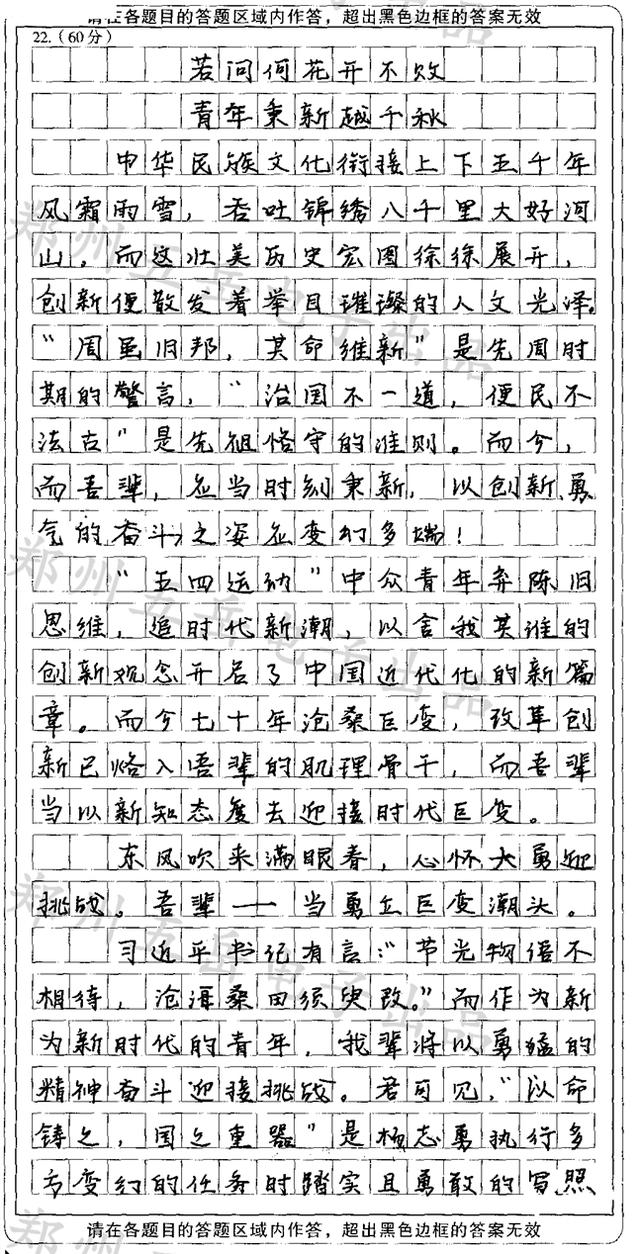 请在各题目的答题区域内作答，超出黑色边框的答案无效
22.（60分）
若问何花开不败
青年秉新越千秋
中华民族文化衔接上下五千年
风霜雨雪，吞吐锦绣八千里大好河
山。而这壮美历史宏图徐徐展开，
创新便散发着举目璀璨的人文光泽。
“周虽旧邦，其命维新”是先周时
期的警言，“治国不一道，便民不
法古”是先祖恪守的准则。而今，
而吾辈，应当时刻秉新，以创新、勇
气的奋斗之姿应变幻多端！
“五四运动”中众青年弃陈旧
思维，追时代新潮，以舍我其谁的
创新观念开启了中国近代化的新篇
章。而今七十年沧桑巨变，改革创
新已烙入吾辈的肌理骨干，而吾辈
当以新知态度去迎接时代巨变。
东风吹来满眼春，心怀大勇迎
挑战。吾辈——当勇立巨变潮头。
习近平书记有言：“节光物语不
相待，沧海桑田须臾改。”而作为新
为新时代的青年，我辈将以勇猛的
精神奋斗迎接挑战。君可见，“以命
铸之，国之重器”是杨志勇执行多
方变幻的任务时踏实且勇敢的写照
请在各题目的答题区域内作答，超出黑色边框的答案无效
郑州五岳电子出品
郑州五岳电子出品
郑州五岳电子出品